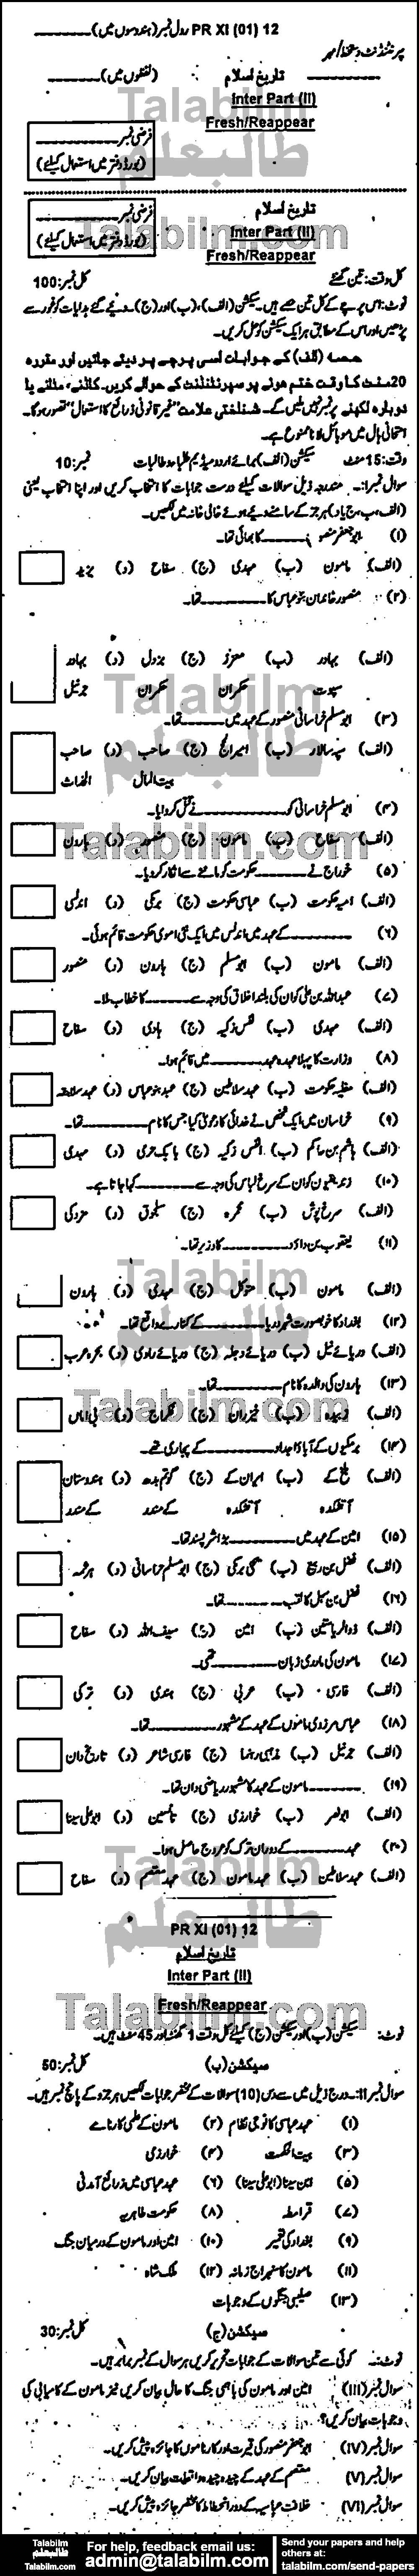 PR XI (01) 12 رول نمبر (ہندسوں میں)
سپرنٹنڈنٹ دستخط/مہر
تاریخ اسلام (لفظوں میں)
Talabilm
Inter Part (II)
Fresh/Reappear
طالبعلم
فرضی نمبر
(بورڈ دفتر میں استعمال کیلئے)
تاریخ اسلام
Inter Part (II)
Fresh/Reappear
فرضی نمبر
(بورڈ دفتر میں استعمال کیلئے)
Talabilm.com
کل وقت: تین گھنٹے کل نمبر: 100
نوٹ: اس پرچے کے کل تین حصے ہیں۔ سیکشن (الف)، (ب) اور (ج)۔ دیئے گئے ہدایات کو غور سے
پڑھیں اور اس کے مطابق ہر ایک سیکشن کو حل کریں۔
حصہ (الف) کے جوابات اسی پرچے پر دیئے جائیں اور مقررہ
20 منٹ کا وقت ختم ہونے پر سپرنٹنڈنٹ کے حوالے کریں۔ کاٹنے، مٹانے یا
دوبارہ لکھنے پر نمبر نہیں ملیں گے۔ شناختی علامت "غیر قانونی ذرائع کا استعمال" تصور ہوگا۔
امتحانی ہال میں موبائل لانا ممنوع ہے۔
وقت: 15 منٹ سیکشن (الف) برائے اردو میڈیم طلباء و طالبات نمبر: 10
سوال نمبر I:۔ مندرجہ ذیل سوالات کیلئے درست جوابات کا انتخاب کریں اور اپنا انتخاب یعنی
(الف، ب، ج یا د) ہر جز کے سامنے دیئے ہوئے خالی خانہ میں لکھیں۔
(۱) ابو جعفر منصور کا بھائی تھا۔
(الف) مامون (ب) مہدی (ج) سفاح (د) یزید
(۲) منصور خاندان بنو عباس کا تھا۔
(الف) بہادر (ب) معزز (ج) بزدل (د) بہادر
سپوت حکمران حکمران جرنیل
(۳) ابو مسلم خراسانی منصور کے عہد میں تھا۔
(الف) سپہ سالار (ب) امیر الحج (ج) صاحب (د) صاحب
بیت المال
(۴) ابو مسلم خراسانی کو نے قتل کر دیا۔
(الف) سفاح (ب) مامون (ج) منصور (د) ہارون
Talabilm.com
(۵) خوارج نے حکومت کو ماننے سے انکار کر دیا۔
(الف) امیہ حکومت (ب) عباسی حکومت (ج) برمکی (د) اندلسی
(۶) کے عہد میں اندلس میں ایک نئی اموی حکومت قائم ہوئی۔
(الف) مامون (ب) ابو مسلم (ج) ہارون (د) منصور
(۷) عبداللہ بن علی کو ان کی بلند اخلاق کی وجہ سے کا خطاب ملا۔
(الف) مہدی (ب) نفس زکیہ (ج) ہادی (د) سفاح
(۸) وزارت کا پہلا عہدہ عہد میں قائم ہوا۔
(الف) مغلیہ حکومت (ب) عہد سلاطین (ج) عہد بنو عباس (د) عہد سلاجقہ
(۹) خراسان میں ایک شخص نے خدائی کا دعویٰ کیا جس کا نام تھا۔
(الف) ہاشم بن حاکم (ب) النفس زکیہ (ج) بابک خرمی (د) مہدی
(۱۰) زندیقیوں کو ان کے سرخ لباس کی وجہ سے کہا جاتا ہے۔
(الف) سرخ پوش (ب) محمرہ (ج) سلجوق (د) مزدکی
(۱۱) یعقوب بن داؤد کا وزیر تھا۔
(الف) مامون (ب) متوکل (ج) مہدی (د) ہارون
(۱۲) بغداد کا خوبصورت شہر دریا کے کنارے واقع تھا۔
(الف) دریائے نیل (ب) دریائے دجلہ (ج) دریائے راوی (د) بحیرہ عرب
(۱۳) ہارون کی والدہ کا نام تھا۔
(الف) زبیدہ (ب) خیزران (ج) (د)
(۱۴) برمکیوں کے آباؤ اجداد کے پجاری تھے۔
(الف) بلخ کے (ب) ایران کے (ج) گوتم بدھ (د) ہندوستان
آتشکدہ آتشکدہ کے مندر کے مندر
(۱۵) امین کے عہد میں بڑا شر پسند تھا۔
(الف) فضل بن ربیع (ب) یحییٰ برمکی (ج) ابو مسلم خراسانی (د) ہرثمہ
(۱۶) فضل بن سہل کا لقب تھا۔
(الف) ذوالریاستین (ب) امین (ج) سیف اللہ (د) سفاح
(۱۷) مامون کی مادری زبان تھی۔
(الف) فارسی (ب) عربی (ج) ہندی (د) ترکی
(۱۸) عباس مروزی مامون کے عہد کے مشہور تھا۔
(الف) جرنیل (ب) مذہبی رہنما (ج) فارسی شاعر (د) تاریخ دان
(۱۹) مامون کے عہد کا مشہور ریاضی دان تھا۔
(الف) ابو نصر (ب) خوارزمی (ج) (د) ابو علی سینا
(۲۰) عہد کے دوران ترک کو عروج حاصل ہوا۔
(الف) عہد سلاطین (ب) عہد مامون (ج) عہد معتصم (د) سفاح
PR XI (01) 12
تاریخ اسلام
Inter Part (II)
Fresh/Reappear
نوٹ: سیکشن (ب) اور سیکشن (ج) کیلئے کل وقت 1 گھنٹہ اور 45 منٹ ہیں۔
سیکشن (ب) کل نمبر: 50
سوال نمبر II:۔ درج ذیل میں سے دس (10) سوالات کے مختصر جوابات لکھیں ہر جزو کے پانچ نمبر ہیں۔
(۱) عہد عباسی کا فوجی نظام (۲) مامون کے علمی کارنامے
(۳) بیت الحکمت (۴) خوارزمی
(۵) ابن سینا (ابو علی سینا) (۶) عہد عباسی میں ذرائع آمدنی
(۷) قرامطہ (۸) حکومت طاہریہ
(۹) بغداد کی تعمیر (۱۰) امین اور مامون کے درمیان جنگ
(۱۱) مامون کا سنہری زمانہ (۱۲) ملک شاہ
(۱۳) صلیبی جنگوں کے وجوہات
سیکشن (ج) کل نمبر: 30
نوٹ: کوئی سے تین سوالات کے جوابات تحریر کریں ہر سوال کے نمبر برابر ہیں۔
سوال نمبر (III) امین اور مامون کی باہمی جنگ کا حال بیان کریں نیز مامون کے کامیابی کی
وجوہات بیان کریں؟
سوال نمبر (IV) ابو جعفر منصور کی سیرت اور کارناموں کا جائزہ پیش کریں۔
سوال نمبر (V) معتصم کے عہد کے چیدہ چیدہ واقعات بیان کریں۔
سوال نمبر (VI) خلافت عباسیہ کے دور انحطاط کا مختصر جائزہ پیش کریں۔
Talabilm
طالبعلم
Talabilm.com
For help, feedback email us:
admin@talabilm.com
Send your papers and help
others at:
talabilm.com/send-papers